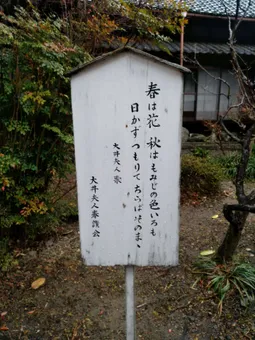 春は花 秋はもみじの色いろも
日かずつもりてちらばそのまゝ
大井夫人 歌
大井夫人奉讃会